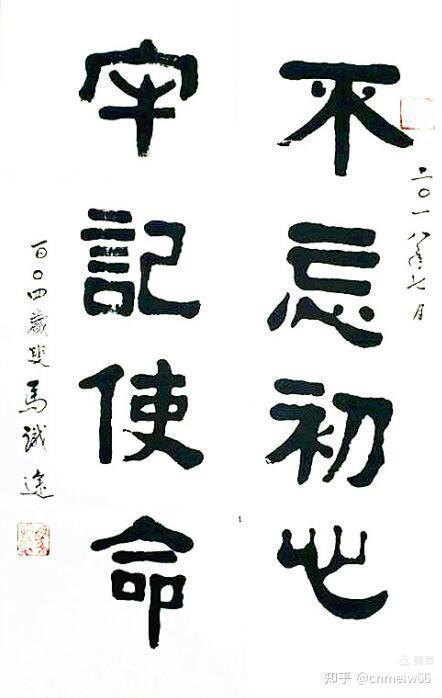 二〇一八年七月
不忘初心
牢記使命
百〇四歲叟馬識途
知乎 @cnmeiw66